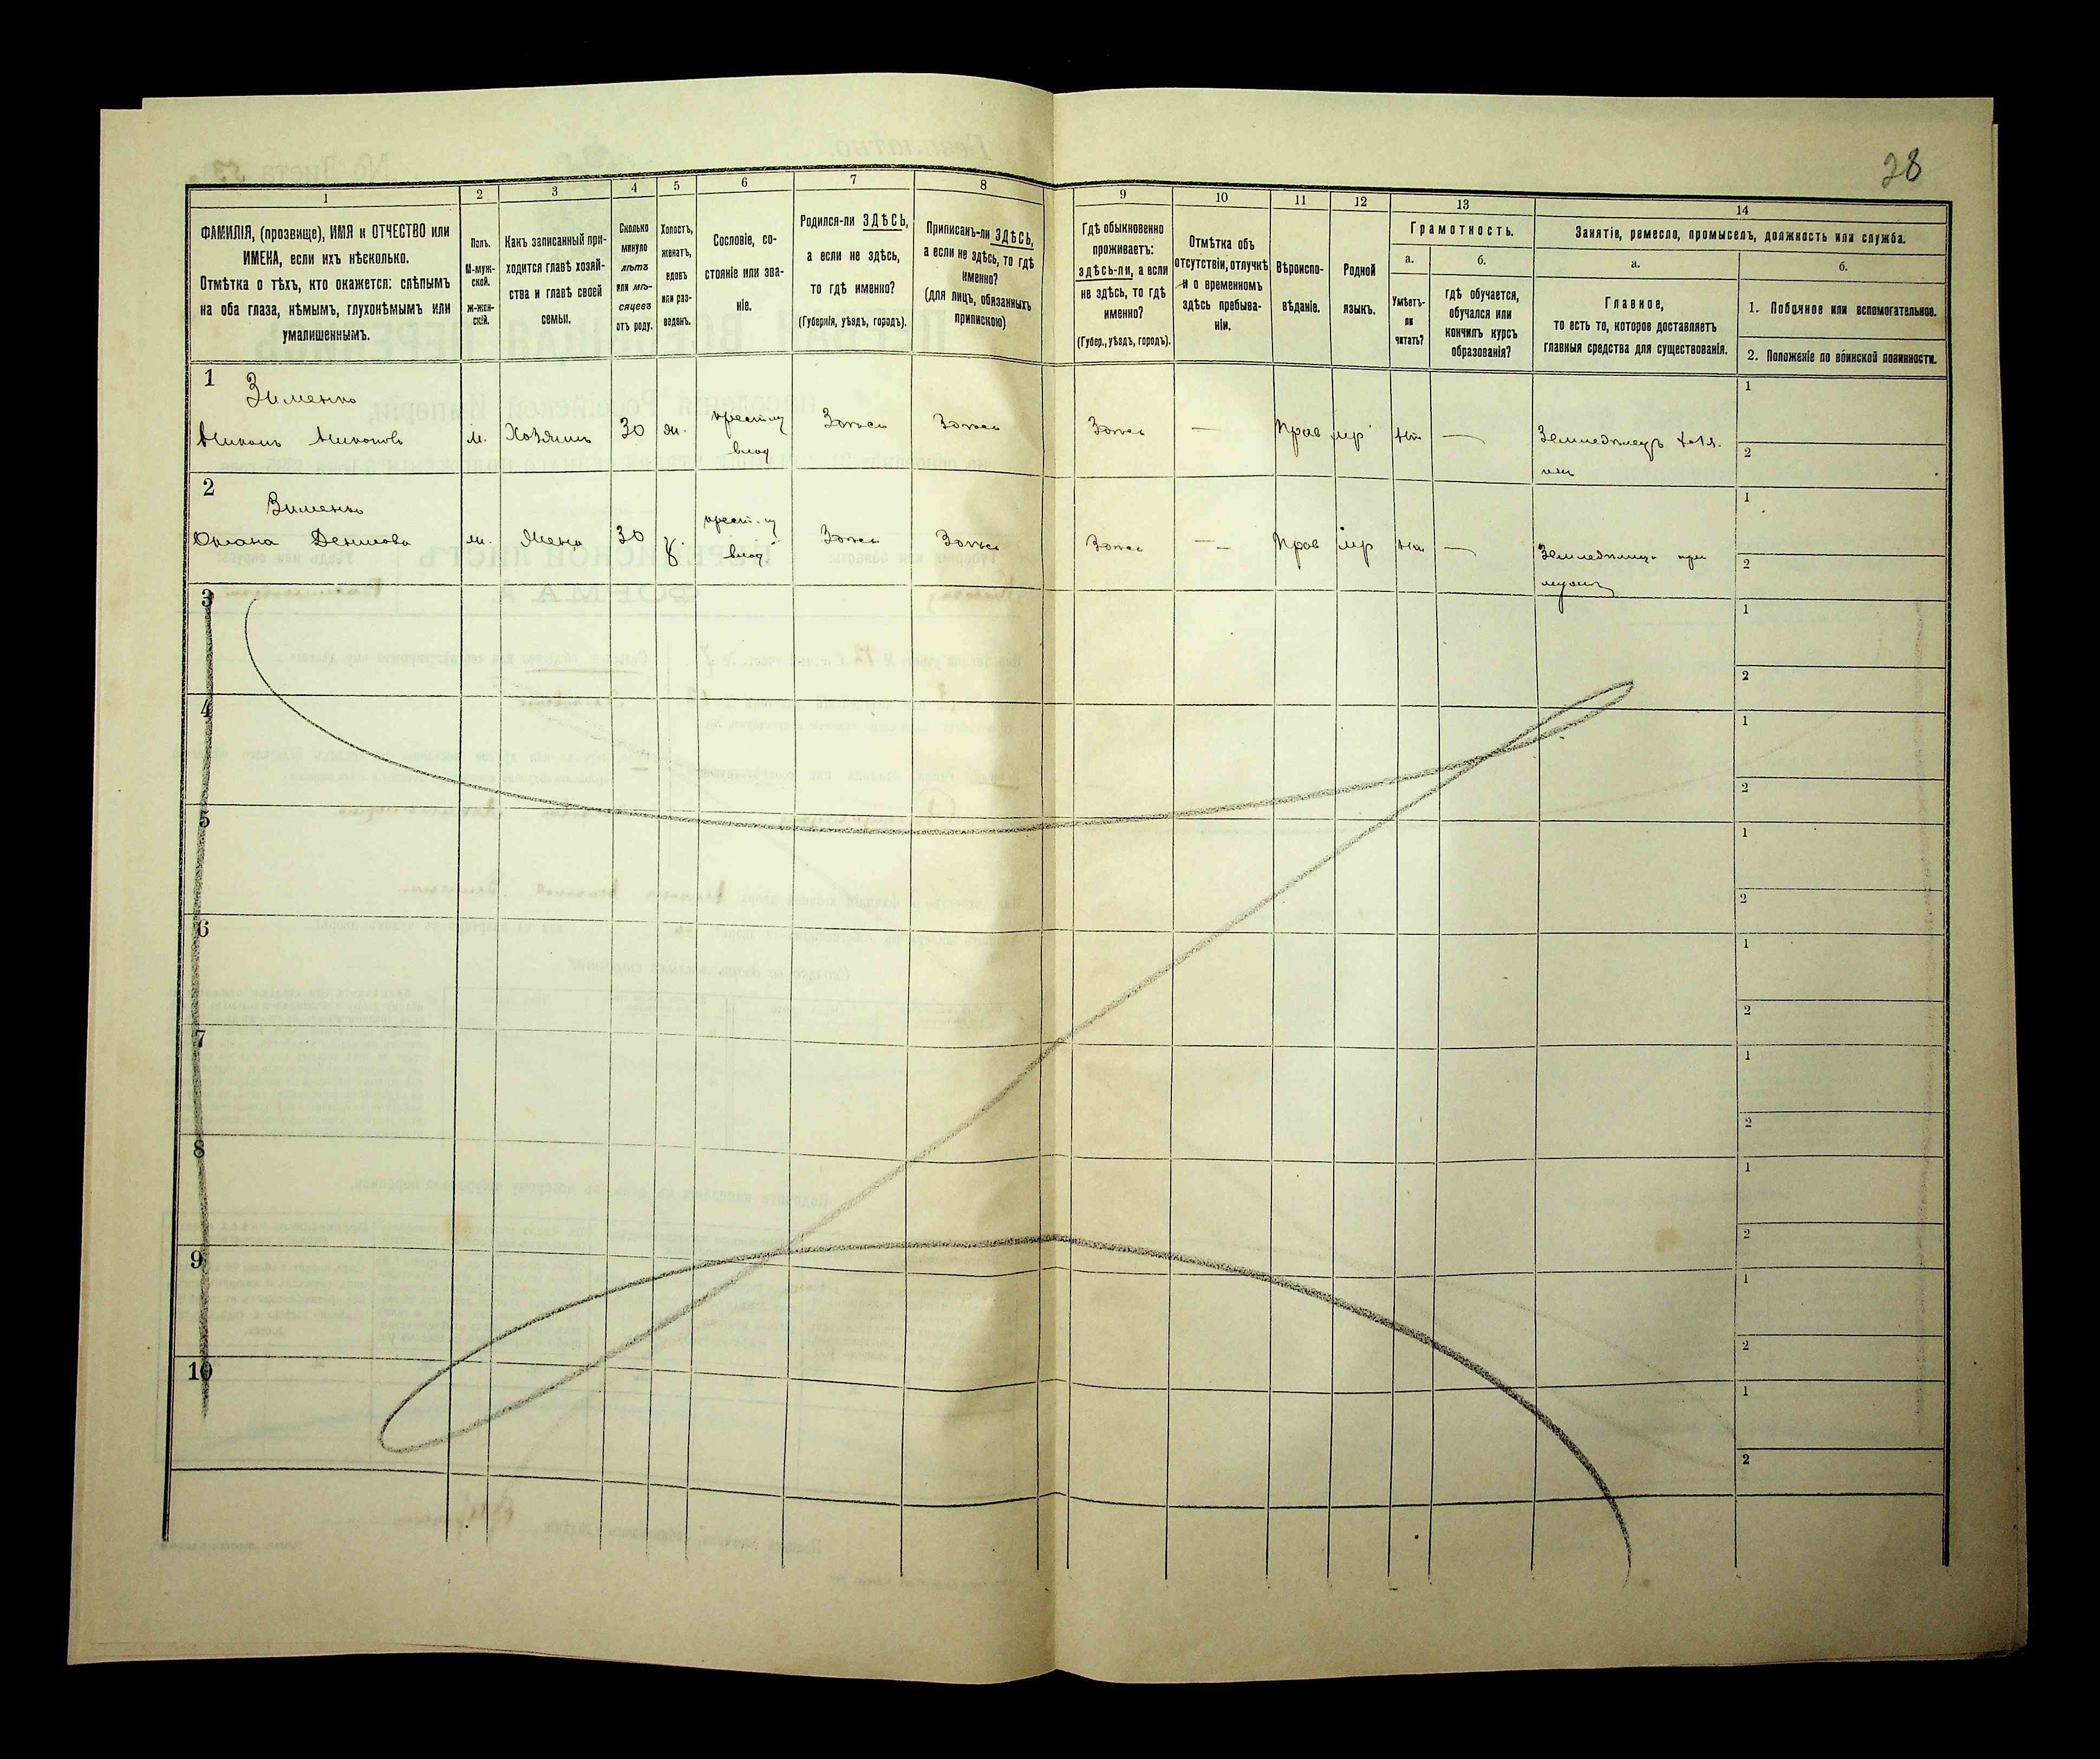 28
1
2
3
4
5
6
7
8
9
10
11
12
13
14
ФАМИЛІЯ, (прозвище), ИМЯ и ОТЧЕСТВО или
ИМЕНА, если ихъ нѣсколько.
Отмѣтка о тѣхъ, кто окажется: слѣпымъ
на оба глаза, нѣмымъ, глухонѣмымъ или
умалишеннымъ.
Полъ.
М-муж-
ской.
Ж-жен-
скій.
Какъ записанный при-
ходится главѣ хозяй-
ства и главѣ своей
семьи.
Сколько
минуло
лѣтъ
или мѣ-
сяцевъ
отъ роду.
Холостъ,
женатъ,
вдовъ
или раз-
веденъ.
Сословіе, со-
стояніе или зва-
ніе.
Родился-ли ЗДѢСЬ,
а если не здѣсь,
то гдѣ именно?
(Губернія, уѣздъ, городъ).
Приписанъ-ли ЗДѢСЬ,
а если не здѣсь, то гдѣ
именно?
(для лицъ, обязанныхъ
припискою)
Гдѣ обыкновенно
проживаетъ:
здѣсь-ли, а если
не здѣсь, то гдѣ
именно?
(Губер., уѣздъ, городъ).
Отмѣтка объ
отсутствіи, отлучкѣ
и о временномъ
здѣсь пребыва-
ніи.
Вѣроиспо-
вѣданіе.
Родной
языкъ.
Грамотность.
а.
Умѣетъ-
ли
читать?
б.
гдѣ обучается,
обучался или
кончилъ курсъ
образованія?
Занятіе, ремесло, промыселъ, должность или служба.
а.
Главное,
то есть то, которое доставляетъ
главныя средства для существованія.
б.
1. Побочное или вспомогательное.
2. Положеніе по воинской повинности.
1 Зименко
м. Хозяинъ 30 жн. Здѣсь Здѣсь Здѣсь — Прав мр нѣт —
влад
1
2
2 Зименко
Денисова Жена 30 Здѣсь Здѣсь Здѣсь — Прав мр нѣт —
влад
1
2
3
1
2
4
1
2
5
1
2
6
1
2
7
1
2
8
1
2
9
1
2
10
1
2